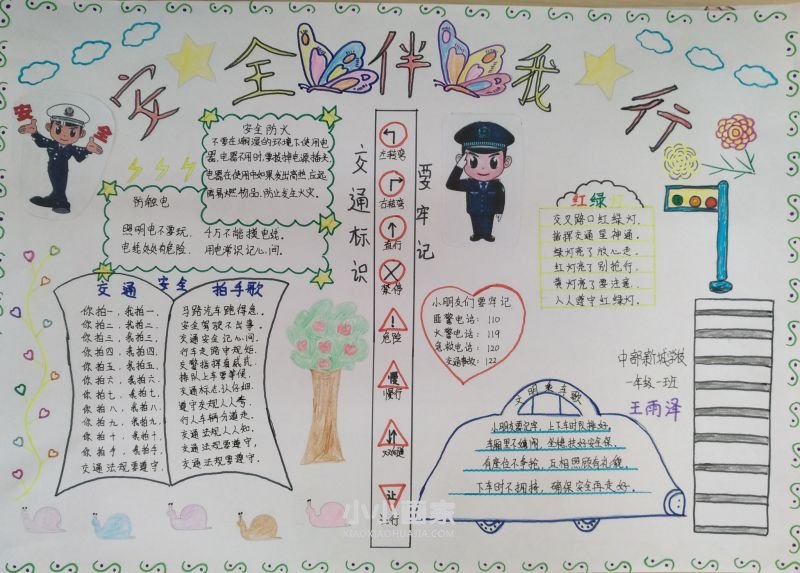 安全伴我行
安全
安全防火
不要在潮湿的环境下使用电
器,电器不用时,要拔掉电源插头
电器在使用中如果发出高热,应远
离易燃物品,防止发生火灾。
防触电
照明电不要玩, 千万不能摸电线。
用电常识记心间。
交通安全拍手歌
你拍一,我拍一,
你拍二,我拍二,
你拍三,我拍三,
你拍四,我拍四,
你拍五,我拍五,
你拍六,我拍六,
你拍七,我拍七,
你拍八,我拍八,
你拍九,我拍九,
你拍十,我拍十,
你拍手,我拍手,
交通法规要遵守。
马路汽车跑得急。
安全驾驶不出事。
交通安全记心间。
行车走路守规矩。
交警指挥显威武。
排队上车要等候。
交通标志认仔细。
遵守交规人人夸。
行人车辆分道走。
交通法规人人知。
交通法规要遵守,
交通法规要遵守。
交通标识
要牢记
左转弯
右转弯
直行
禁停
危险
慢
慢行
双向交通
让
让行
小朋友们要牢记
匪警电话: 110
火警电话: 119
急救电话: 120
交通事故: 122
红绿灯
交叉路口红绿灯,
指挥交通显神通。
绿灯亮了放心走,
红灯亮了别抢行。
黄灯亮了要注意,
人人遵守红绿灯。
中部新城学校
一年级一班
王雨泽
文明乘车歌
小朋友要记牢,上下车时队排好。
车厢里不嬉闹,坐稳扶好安全保。
有座位不争抢,互相照顾有礼貌。
下车时不拥挤,确保安全再走好。
小小画家
XIAOXIAOHUAJIA.COM